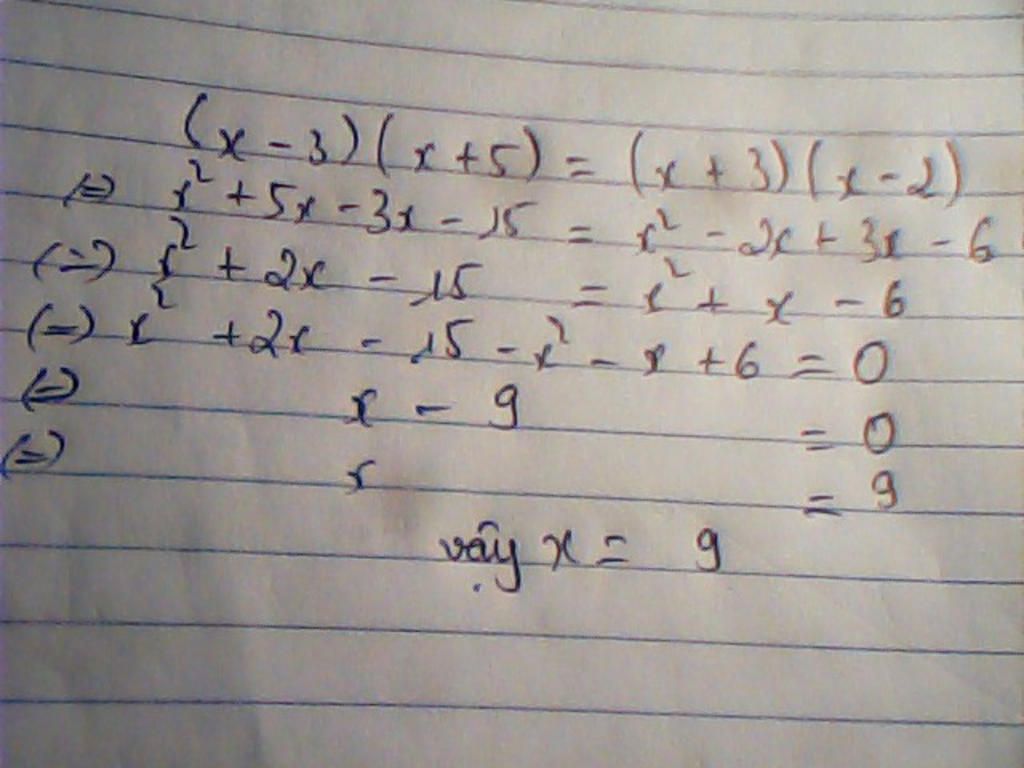 (x - 3)(x + 5) = (x + 3)(x - 2)
(=) x² + 5x - 3x - 15 = x² - 2x + 3x - 6
(=) x² + 2x - 15 = x² + x - 6
(=) x² + 2x - 15 - x² - x + 6 = 0
(=) x - 9 = 0
(=) x = 9
vậy x = 9